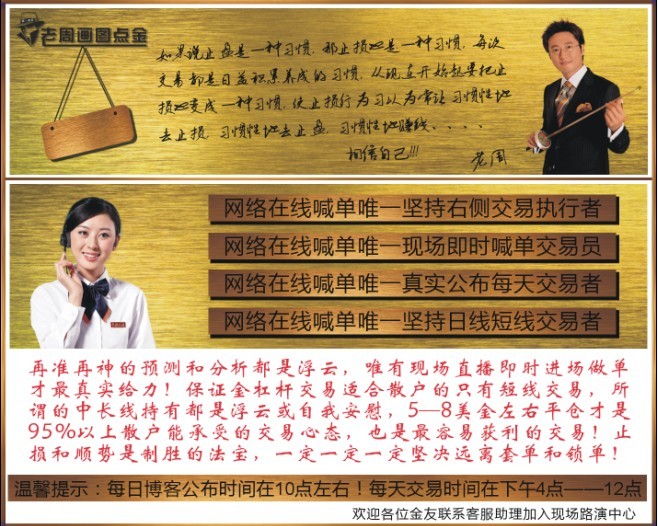 老周画图点金
如果说止盘是一种习惯,那止损也是一种习惯,每次
交易都是日益积累养成的习惯,从现在开始起要把止
损变成一种习惯,使止损行为习以为常让习惯性地
去止损,习惯性地去止盘,习惯性地赚钱....
相信自己!!!
老周
网络在线喊单唯一坚持右侧交易执行者
网络在线喊单唯一现场即时喊单交易员
网络在线喊单唯一真实公布每天交易者
网络在线喊单唯一坚持日线短线交易者
再准再神的预测和分析都是浮云,唯有现场直播即时进场做单
才最真实给力!保证金杠杆交易适合散户的只有短线交易,所
谓的中长线持有都是浮云或自我安慰,5—8美金左右平仓才是
95%以上散户能承受的交易心态,也是最容易获利的交易!止
损和顺势是制胜的法宝,一定一定一定坚决远离套单和锁单!
温馨提示:每日博客公布时间在10点左右!每天交易时间在下午4点——12点
欢迎各位金友联系客服助理加入现场路演中心